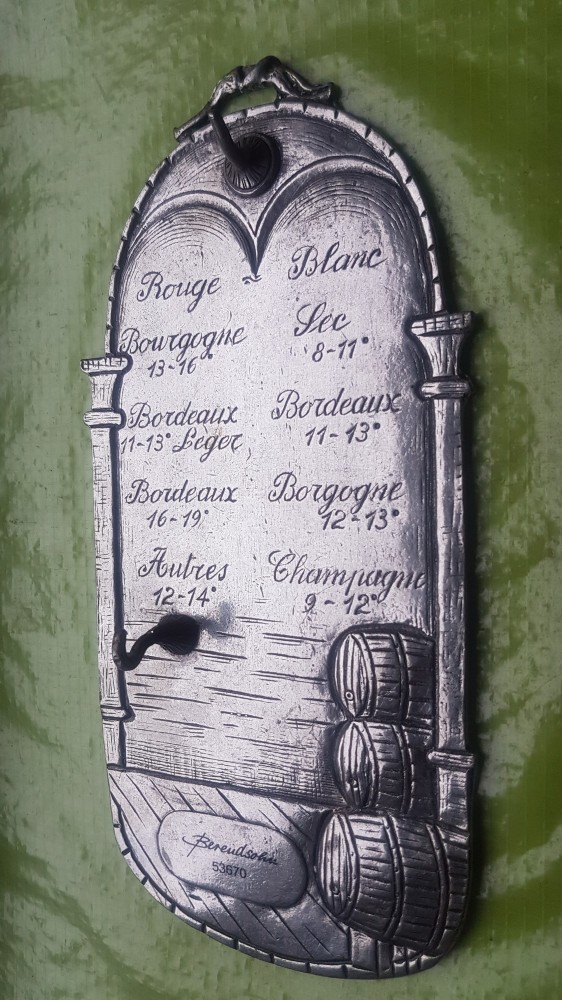 Rouge
Bourgogne
13-16°
Bordeaux
11-13° Leger
Bordeaux
16-19°
Autres
12-14°
Blanc
Sec
8-11°
Bordeaux
11-13°
Borgogne
12-13°
Champagne
9-12°
Berendsohn
53670